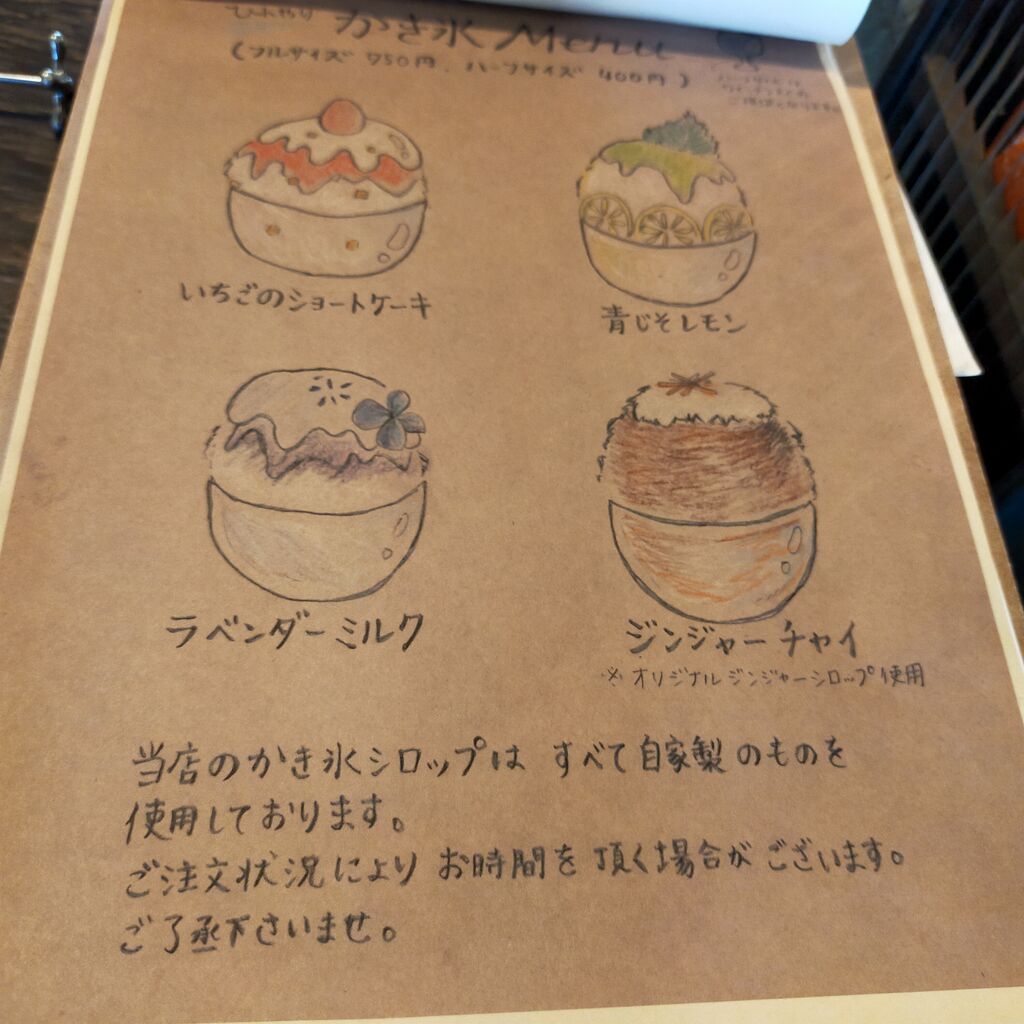 ひんやり かき氷 Menu
(フルサイズ 750円、ハーフサイズ 400円)
いちごのショートケーキ
青じそレモン
ラベンダーミルク
ジンジャーチャイ
※オリジナルジンジャーシロップ使用
当店のかき氷シロップは すべて自家製のものを
使用しております。
ご注文状況により お時間を 頂く場合がございます。
ご了承下さいませ。